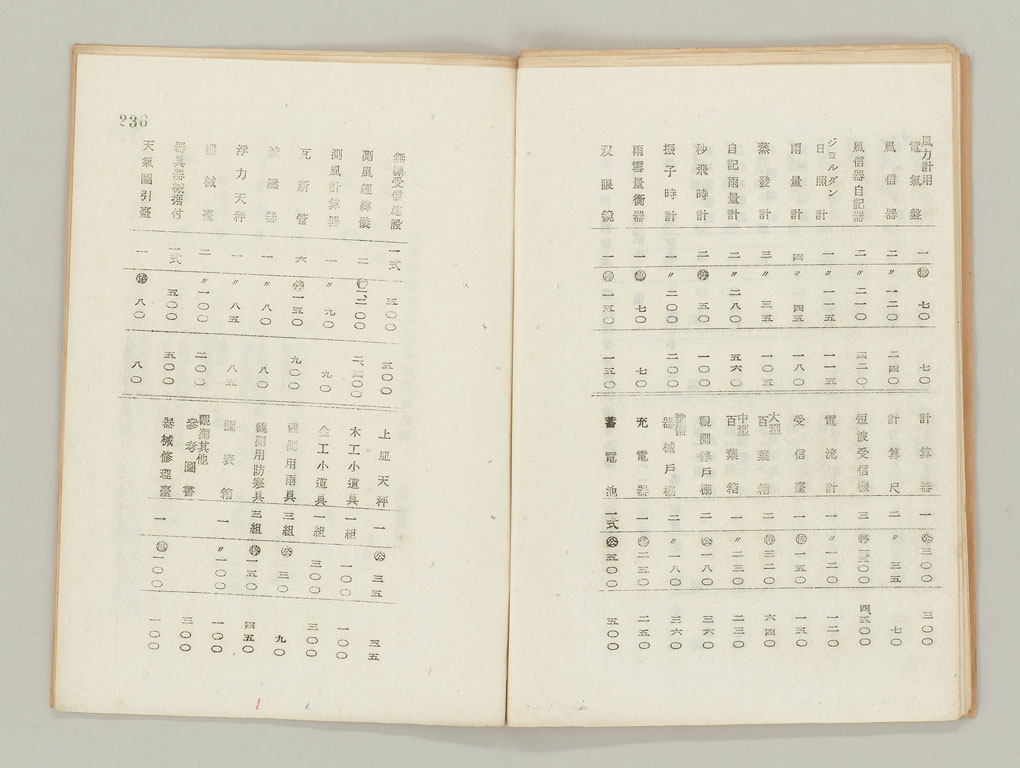 236
風力計用電氣盤 一 七〇 七〇
風信器 二 〃 一二〇 二四〇
風信器自記器 二 〃 二一〇 四二〇
ジヨルダン日照計 一 〃 一一五 一一五
雨量計 四 〃 四五 一八〇
蒸發計 三 〃 三五 一〇五
自記雨量計 二 〃 二八〇 五六〇
秒飛時計 二 五〇 一〇〇
振子時計 一 〃 二〇〇 二〇〇
雨雪量衡器 一 七〇 七〇
双眼鏡 一 一五〇 一五〇
計算器 一 公 三〇〇 三〇〇
計算尺 二 〃 三五 七〇
短波受信機 三 一、五〇〇 四、五〇〇
電流計 一 〃 一二〇 一二〇
受信臺 一 一五〇 一五〇
大型百葉箱 二 三二〇 六四〇
中型百葉箱 一 〃 二三〇 二三〇
觀測器戶棚 二 公 一八〇 三六〇
器械戶棚 二 〃 一八〇 三六〇
充電器 一 二五〇 二五〇
蓄電池 一式 公 五〇〇 五〇〇
無線受信施設 一式 五〇〇 五〇〇
測風經緯儀 二 一、二〇〇 二、四〇〇
測風計算器 一 〃 九〇 九〇
瓦斯管 六 一五〇 九〇〇
器 一 〃 八〇 八〇
浮力天秤 一 〃 八五 八五
機械臺 二 〃 一〇〇 二〇〇
器具器械据付 一式 五〇〇 五〇〇
天氣圖引臺 一 八〇 八〇
上皿天秤 一 公 三五 三五
木工小道具 一組 一〇〇 一〇〇
金工小道具 一組 三〇〇 三〇〇
觀測用雨具 三組 公 三〇 九〇
觀測用防寒具 三組 一五〇 四五〇
圖表箱 一 〃 一〇〇 一〇〇
觀測其他參考圖書 三〇〇
器械修理臺 一 一〇〇 一〇〇